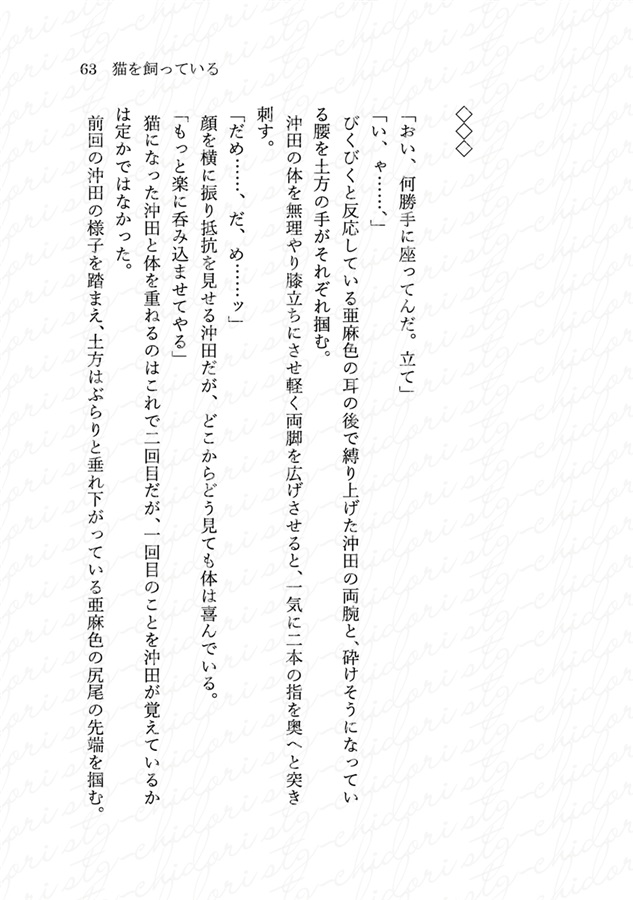 63 猫を飼っている
◇◇◇
「おい、何勝手に座ってんだ。立て」
「い、ゃ……、」
びくびくと反応している亜麻色の耳の後で縛り上げた沖田の両腕と、砕けそうになってい
る腰を土方の手がそれぞれ掴む。
沖田の体を無理やり膝立ちにさせ軽く両脚を広げさせると、一気に二本の指を奥へと突き
刺す。
「だめ……、だ、め……ッ」
顔を横に振り抵抗を見せる沖田だが、どこからどう見ても体は喜んでいる。
「もっと楽に呑み込ませてやる」
猫になった沖田と体を重ねるのはこれで二回目だが、一回目のことを沖田が覚えているか
は定かではなかった。
前回の沖田の様子を踏まえ、土方はぶらりと垂れ下がっている亜麻色の尻尾の先端を掴む。